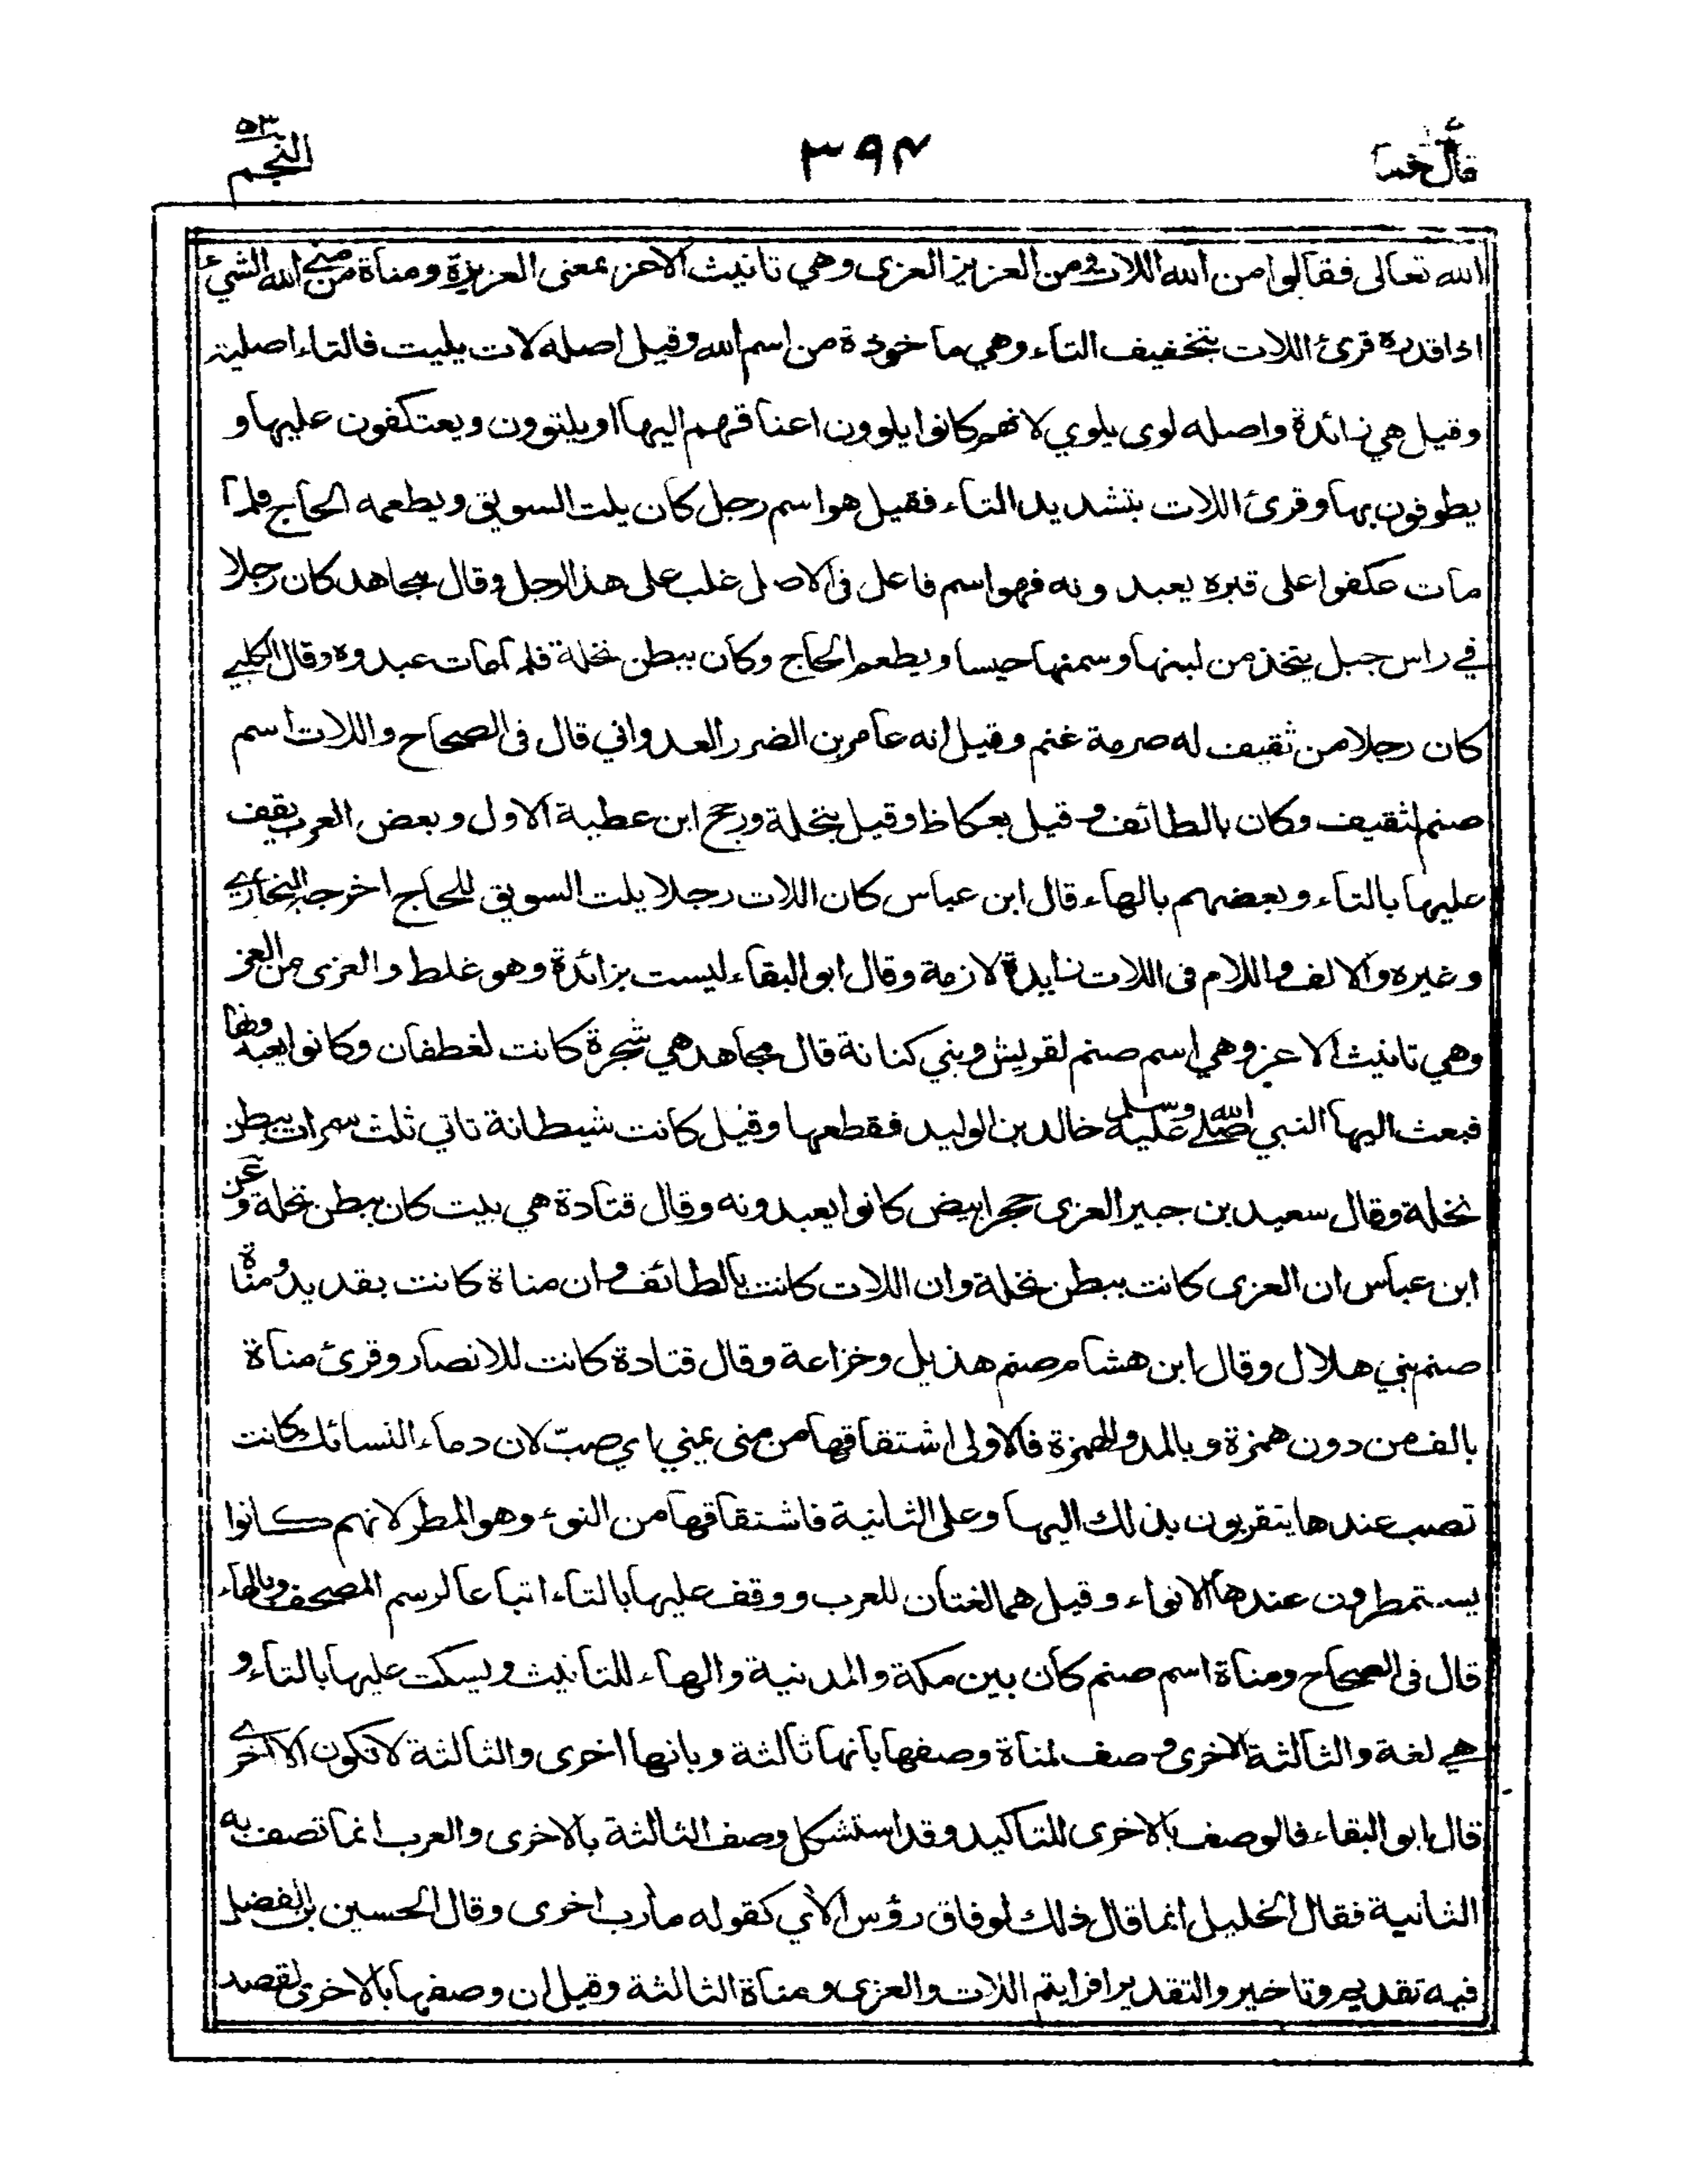 قال فما
٣٩٤
النجم ٥٣
الله تعالى فقالوا من الله اللات ومن العزيز العزى وهي تانيث الاعز بمعنى العزيزة ومناة من منى الله الشيء
اذا قدره قرئ اللات بتخفيف التاء وهي ماخوذة من اسم الله وقيل اصله لات يليت فالتاء اصلية
وقيل هي زائدة واصله لوى يلوي لانهم كانوا يلوون اعناقهم اليها او يلتوون ويعتكفون عليها و
يطوفون بها وقرئ اللات بتشديد التاء فقيل هو اسم رجل كان يلت السويق ويطعمه الحاج فلما
مات عكفوا على قبره يعبدونه فهو اسم فاعل في الاصل غلب على هذا الرجل وقال مجاهد كان رجلا
في راس جبل يتخذ من لبنها وسمنها حيسا ويطعم الحاج وكان ببطن نخلة فلما مات عبدوه وقال الكلبي
كان رجلا من ثقيف له صرمة غنم وقيل انه عامر بن الضرر العدواني قال في الصحاح واللات اسم
صنم لثقيف وكان بالطائف وقيل بعكاظ وقيل بنخلة ورجح ابن عطية الاول وبعض العرب يقف
عليها بالتاء وبعضهم بالهاء قال ابن عباس كان اللات رجلا يلت السويق للحاج اخرجه البخاري
وغيره والالف واللام في اللات زايدة لازمة وقال ابو البقاء ليست بزائدة وهو غلط والعزى من العز
وهي تانيث الاعز وهي اسم صنم لقريش وبني كنانة قال مجاهد هي شجرة كانت لغطفان وكانوا يعبدونها
فبعث اليها النبي صلى الله عليه وسلم خالد بن الوليد فقطعها وقيل كانت شيطانة تاتي ثلث سمرات ببطن
نخلة وقال سعيد بن جبير العزى حجر ابيض كانوا يعبدونه وقال قتادة هي بيت كان ببطن نخلة وعن
ابن عباس ان العزى كانت ببطن نخلة وان اللات كانت بالطائف وان مناة كانت بقديد ومناة
صنم بني هلال وقال ابن هشام صنم هذيل وخزاعة وقال قتادة كانت للانصار وقرئ مناة
بالف من دون همزة وبالمد والهمزة فالاولى اشتقاقها من منى يمني اي صبّ لان دماء النسائك كانت
تصب عندها يتقربون بذلك اليها وعلى الثانية فاشتقاقها من النوء وهو المطر لانهم كانوا
يستمطرون عندها الانواء وقيل هما لغتان للعرب ووقف عليها بالتاء اتباعا لرسم المصحف وبالهاء
قال في الصحاح ومناة اسم صنم كان بين مكة والمدنية والهاء للتانيث ويسكت عليها بالتاء و
هي لغة والثالثة الاخرى وصف لمناة وصفها بانها ثالثة وبانها اخرى والثالثة لا تكون الا اخرى
قال ابو البقاء فالوصف بالاخرى للتاكيد وقد استشكل وصف الثالثة بالاخرى والعرب انما تصف به
الثانية فقال الخليل انما قال ذلك لوفاق رؤس الآي كقوله مآرب اخرى وقال الحسين بن الفضل
فيه تقديم وتاخير والتقدير افرايتم اللات والعزى ومناة الثالثة وقيل ان وصفها بالاخرى لقصد